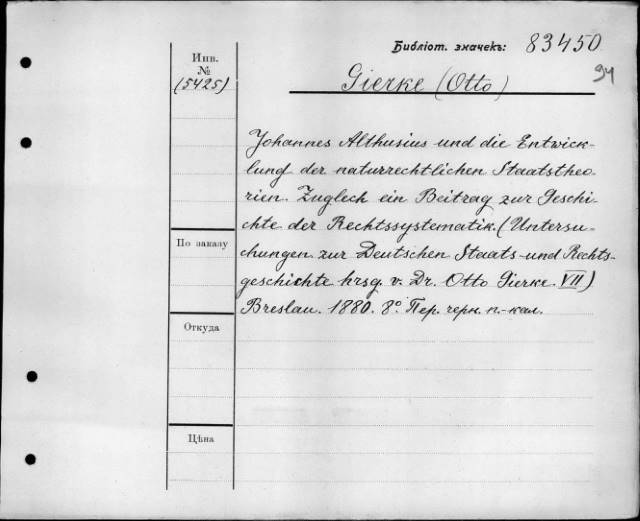 Библіот. значекъ: 83450
94
Инв. №
(5425)
Gierke (Otto)
Johannes Althusius und die Entwick-
lung der naturrechtlichen Staatstheo-
rien. Zuglech ein Beitrag zur Geschi-
chte der Rechtssystematik. (Untersu-
По заказу
chungen zur Deutschen Staats- und Rechts-
geschichte hrsg. v. Dr. Otto Gierke. VII)
Breslau. 1880. 8°. Пер. черн. п.-кал.
Откуда
Цѣна